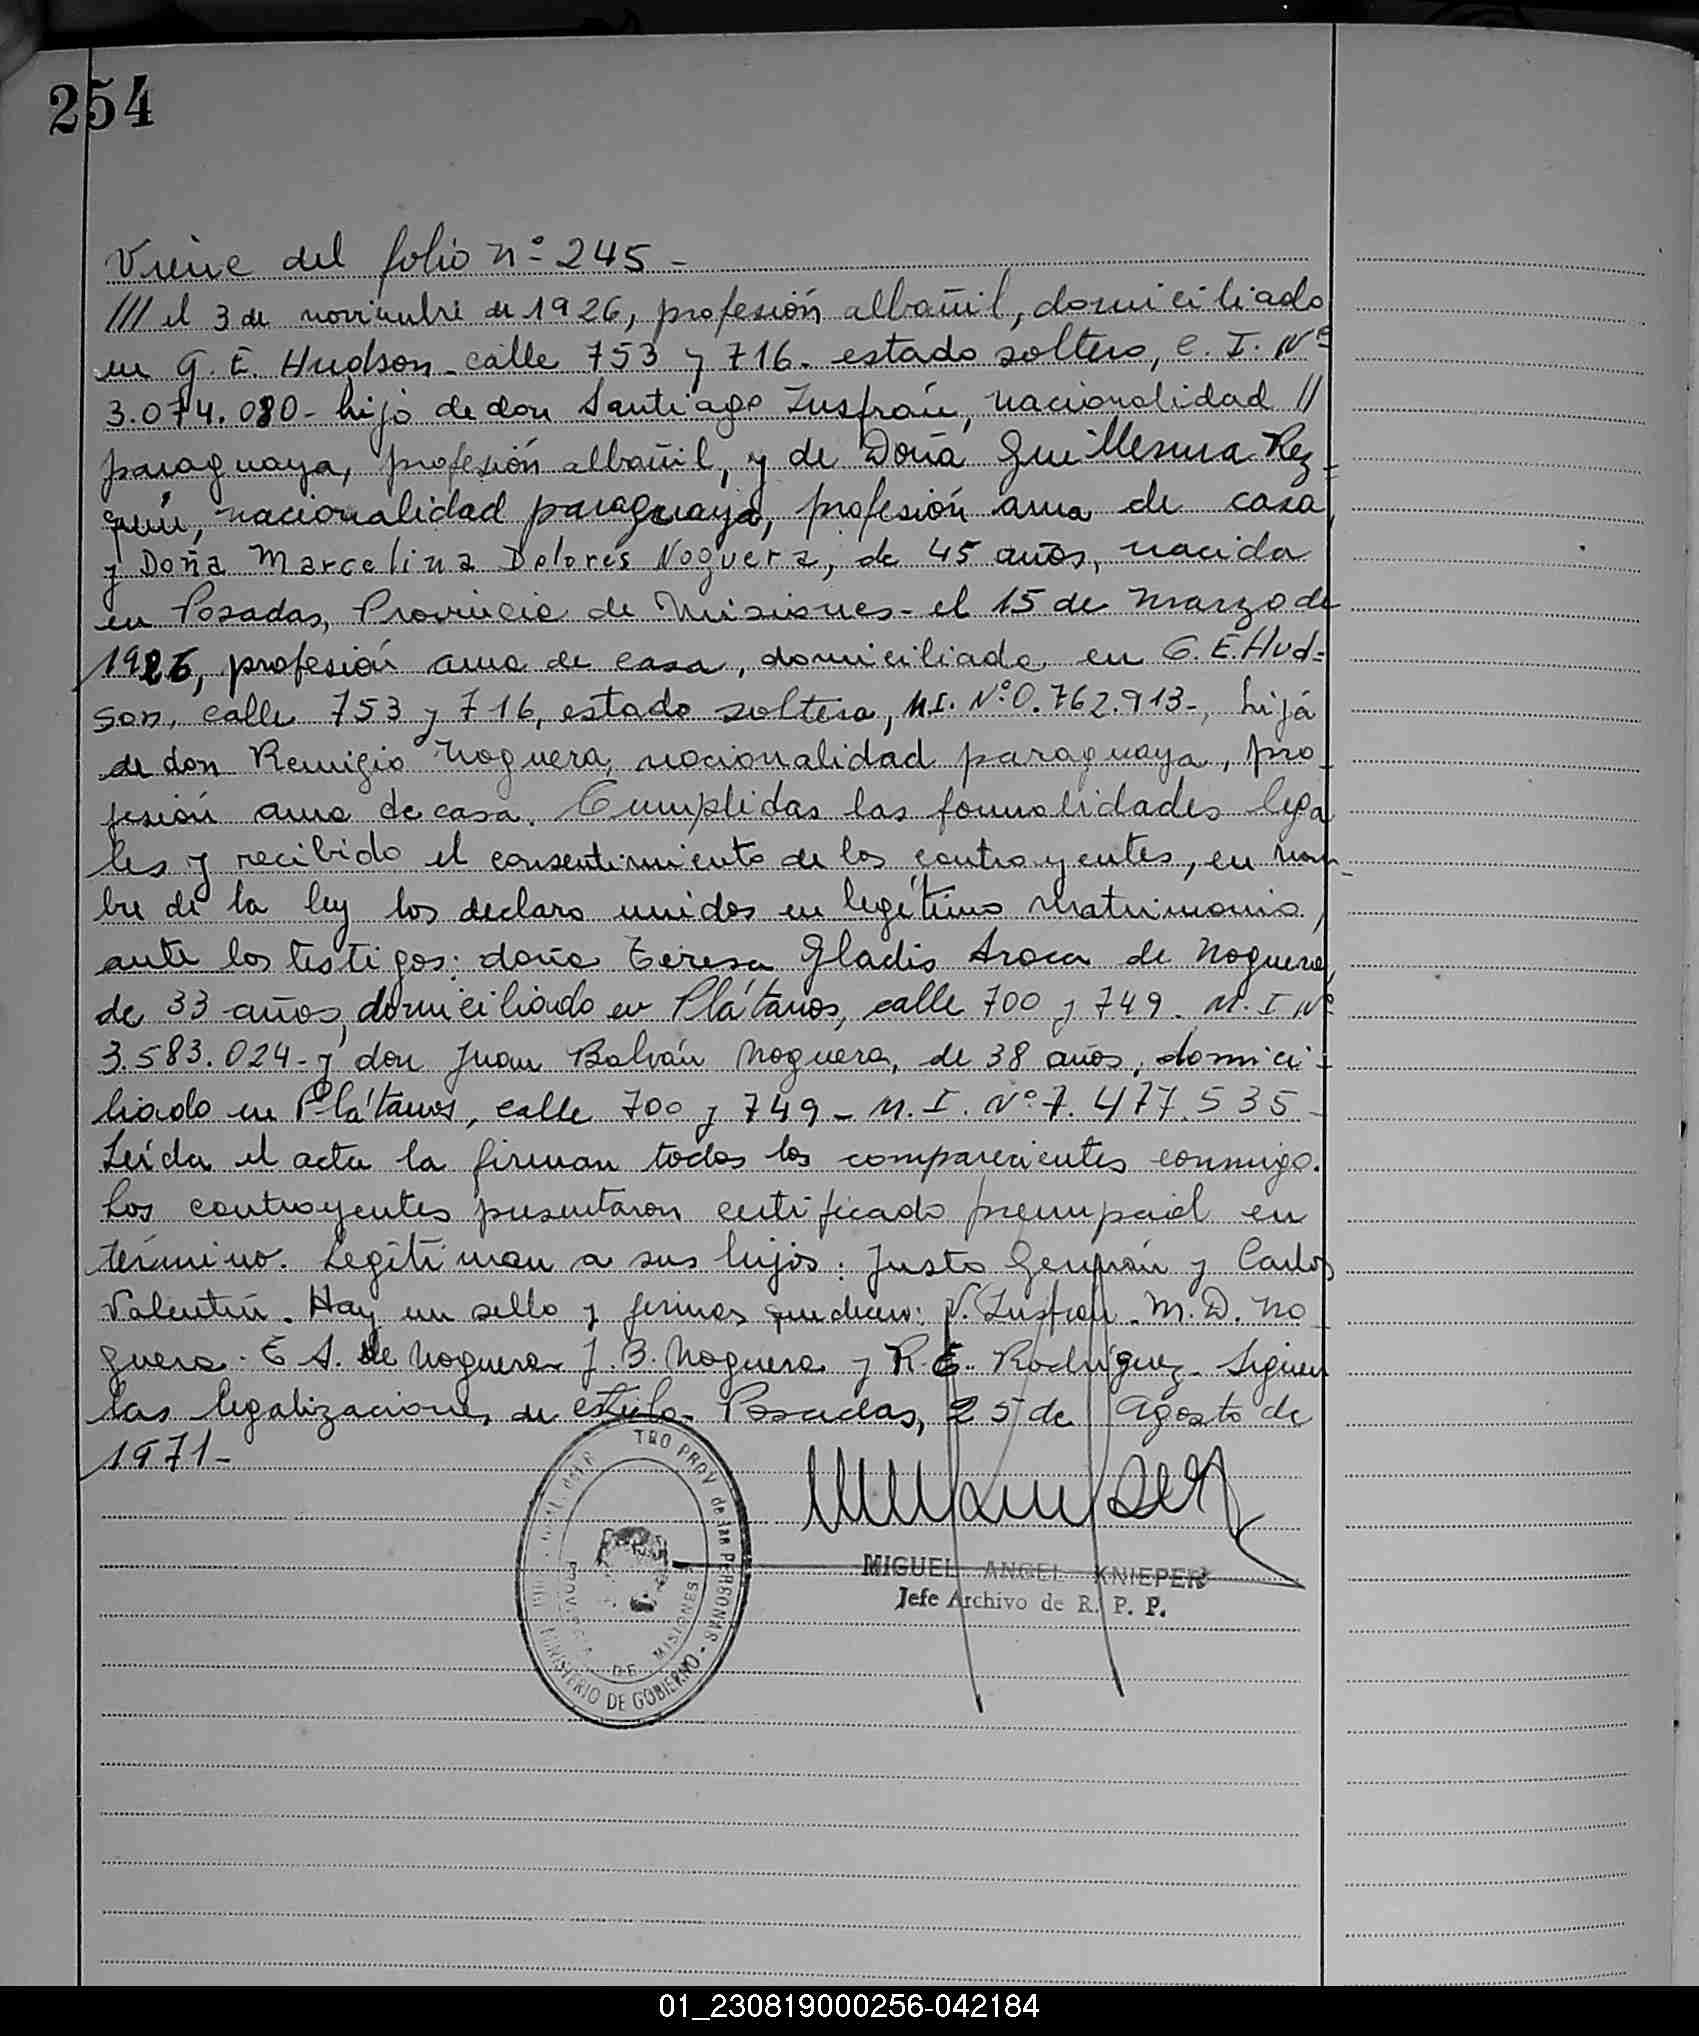 254
Viene del folio nº 245 -
/// el 3 de noviembre de 1926, profesión albañil, domiciliado
en G. E. Hudson - calle 753 y 716 - estado soltero, C. I. Nº
3.074.080 - hijo de don Santiago Insfrán, nacionalidad //
paraguaya, profesión albañil, y de Doña Guillermina Rez-
quín, nacionalidad paraguaya, profesión ama de casa,
y Doña Marcelina Dolores Noguera, de 45 años, nacida
en Posadas, Provincia de Misiones - el 15 de marzo de
1926, profesión ama de casa, domiciliada en G. E. Hud=
son, calle 753 y 716, estado soltera, M.I. Nº 0.762.913-, hija
de don Remigio Noguera, nacionalidad paraguaya, pro-
fesión ama de casa. Cumplidas las formalidades lega
les y recibido el consentimiento de los contrayentes, en nom-
bre de la ley los declaro unidos en legítimo matrimonio,
ante los testigos: doña Teresa Gladis Aroca de Noguera,
de 33 años, domiciliado en Plátanos, calle 700 y 749 - M. I Nº
3.583.024 - y don Juan Balván Noguera, de 38 años, domici-
liado en Plátanos, calle 700 y 749 - M. I. Nº 7.477.535 -
Leída el acta la firman todos los comparecientes conmigo.
Los contrayentes presentaron certificado prenupcial en
término. Legitiman a sus hijos: Justo Germán y Carlos
Valentín. Hay un sello y firmas que dicen: V. Insfran - M. D. No-
guera - E A. de Noguera - J. B. Noguera y R. E. Rodríguez - Siguen
las legalizaciones de estilo - Posadas, 25 de Agosto de
1971 -
TRO PROV de las PERSONAS - MINISTERIO DE GOBIERNO
PROVINCIA DE MISIONES
MIGUEL ANGEL KNIEPER
Jefe Archivo de R. P. P.
01_230819000256-042184